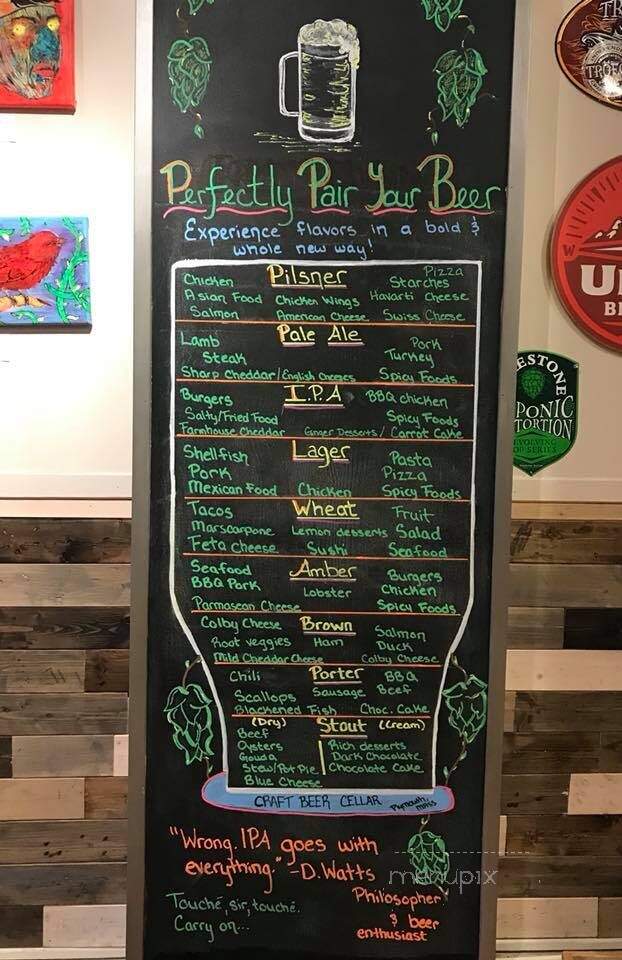 Perfectly Pair Your Beer
Experience flavors in a bold &
whole new way!
Pilsner
Chicken Starches Pizza
Asian Food Chicken Wings Havarti Cheese
Salmon American Cheese Swiss Cheese
Pale Ale
Lamb Pork
Steak Turkey
Sharp Cheddar/English Cheeses Spicy Foods
I.P.A
Burgers BBQ chicken
Salty/Fried Food Spicy Foods
Farmhouse Cheddar Ginger Desserts/ Carrot Cake
Lager
Shellfish Pasta
Pork Pizza
Mexican Food Chicken Spicy Foods
Wheat
Tacos Fruit
Marscarpone Lemon desserts Salad
Feta cheese Sushi Seafood
Amber
Seafood Burgers
BBQ Pork Lobster Chicken
Parmasean Cheese Spicy Foods
Brown
Colby Cheese Salmon
Root veggies Ham Duck
Mild Cheddar Cheese Colby Cheese
Porter
Chili BBQ
Scallops Sausage Beef
Blackened Fish Choc. Cake
(Dry) Stout (Cream)
Beef
Oysters Rich desserts
Gouda Dark Chocolate
Stew/Pot Pie Chocolate Cake
Blue Cheese
CRAFT BEER CELLAR
"Wrong. IPA goes with
everything." -D. Watts
Philosopher
& beer
enthusiast
Touché, sir, touché.
Carry on...
menupix
TR
W
U
B
ESTONE
PONIC
TORTION